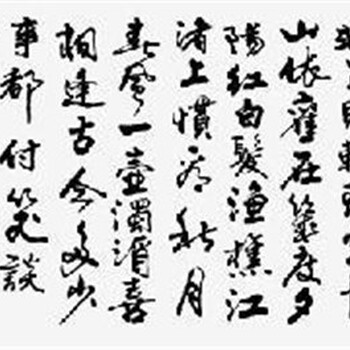 山依舊在幾度夕
陽紅白髮漁樵江
渚上慣看秋月
春風一壺濁酒喜
相逢古今多少
事都付笑談